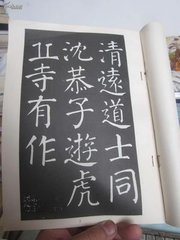 清遠道士同
沈恭子遊虎
丘寺有作